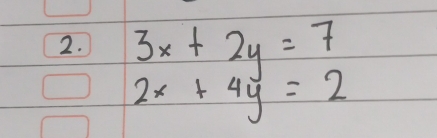 2. 3x + 2y = 7
2x + 4y = 2